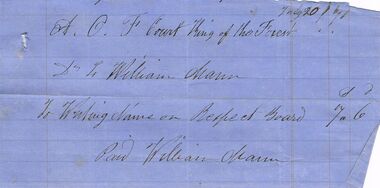 July 20 / 71
A. O. F Court King of the Forest
Dr To William Mann
s d
To Writing Name on Respect Board 7 " 6
Paid William Mann